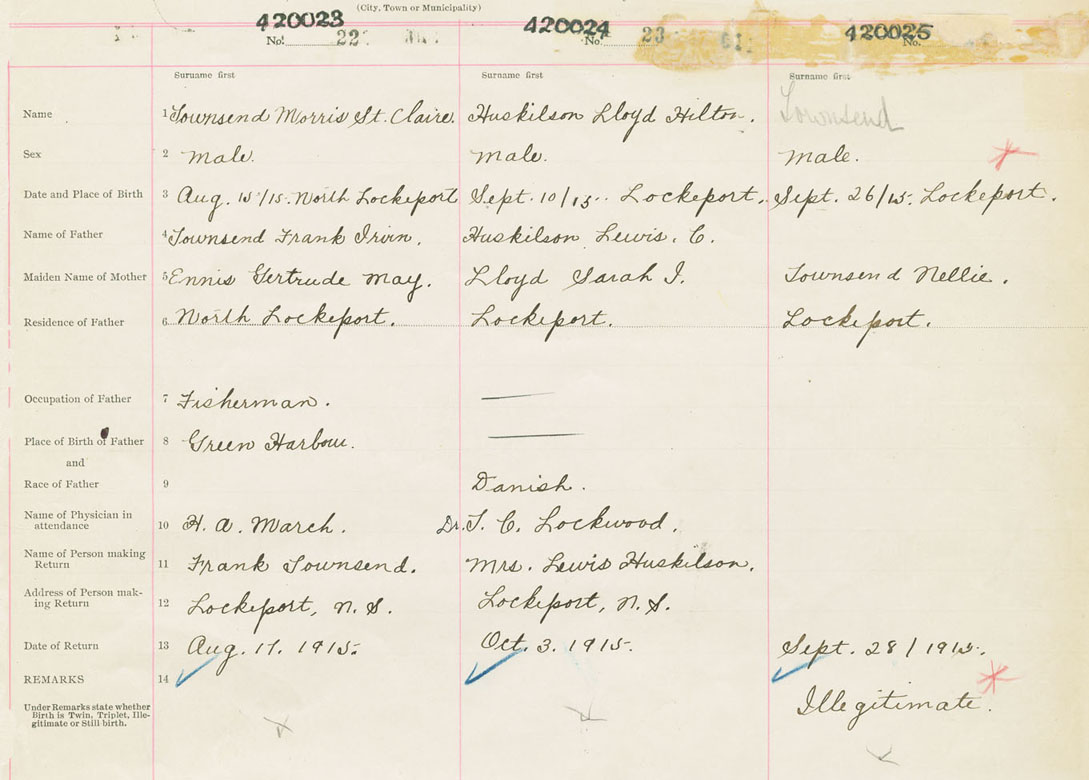 (City, Town or Municipality)
420023 420024 420025
No. 22 No. 23 No.
Surname first Surname first Surname first
Name 1 Townsend Morris St. Claire. Huskilson Lloyd Hilton. Townsend
Sex 2 Male. Male. Male.
Date and Place of Birth 3 Aug. 15/15. North Lockeport Sept. 10/15. Lockeport. Sept. 26/15. Lockeport.
Name of Father 4 Townsend Frank Irvin. Huskilson Lewis. C.
Maiden Name of Mother 5 Ennis Gertrude May. Lloyd Sarah I. Townsend Nellie.
Residence of Father 6 North Lockeport. Lockeport. Lockeport.
Occupation of Father 7 Fisherman. —
Place of Birth of Father 8 Green Harbour. —
and
Race of Father 9 Danish.
Name of Physician in
attendance 10 H. A. March. Dr. T. C. Lockwood.
Name of Person making
Return 11 Frank Townsend. Mrs. Lewis Huskilson.
Address of Person mak-
ing Return 12 Lockeport, N. S. Lockeport, N. S.
Date of Return 13 Aug. 17. 1915. Oct. 3. 1915. Sept. 28/1915.
REMARKS 14
Under Remarks state whether
Birth is Twin, Triplet, Ille-
gitimate or Still birth.
Illegitimate.